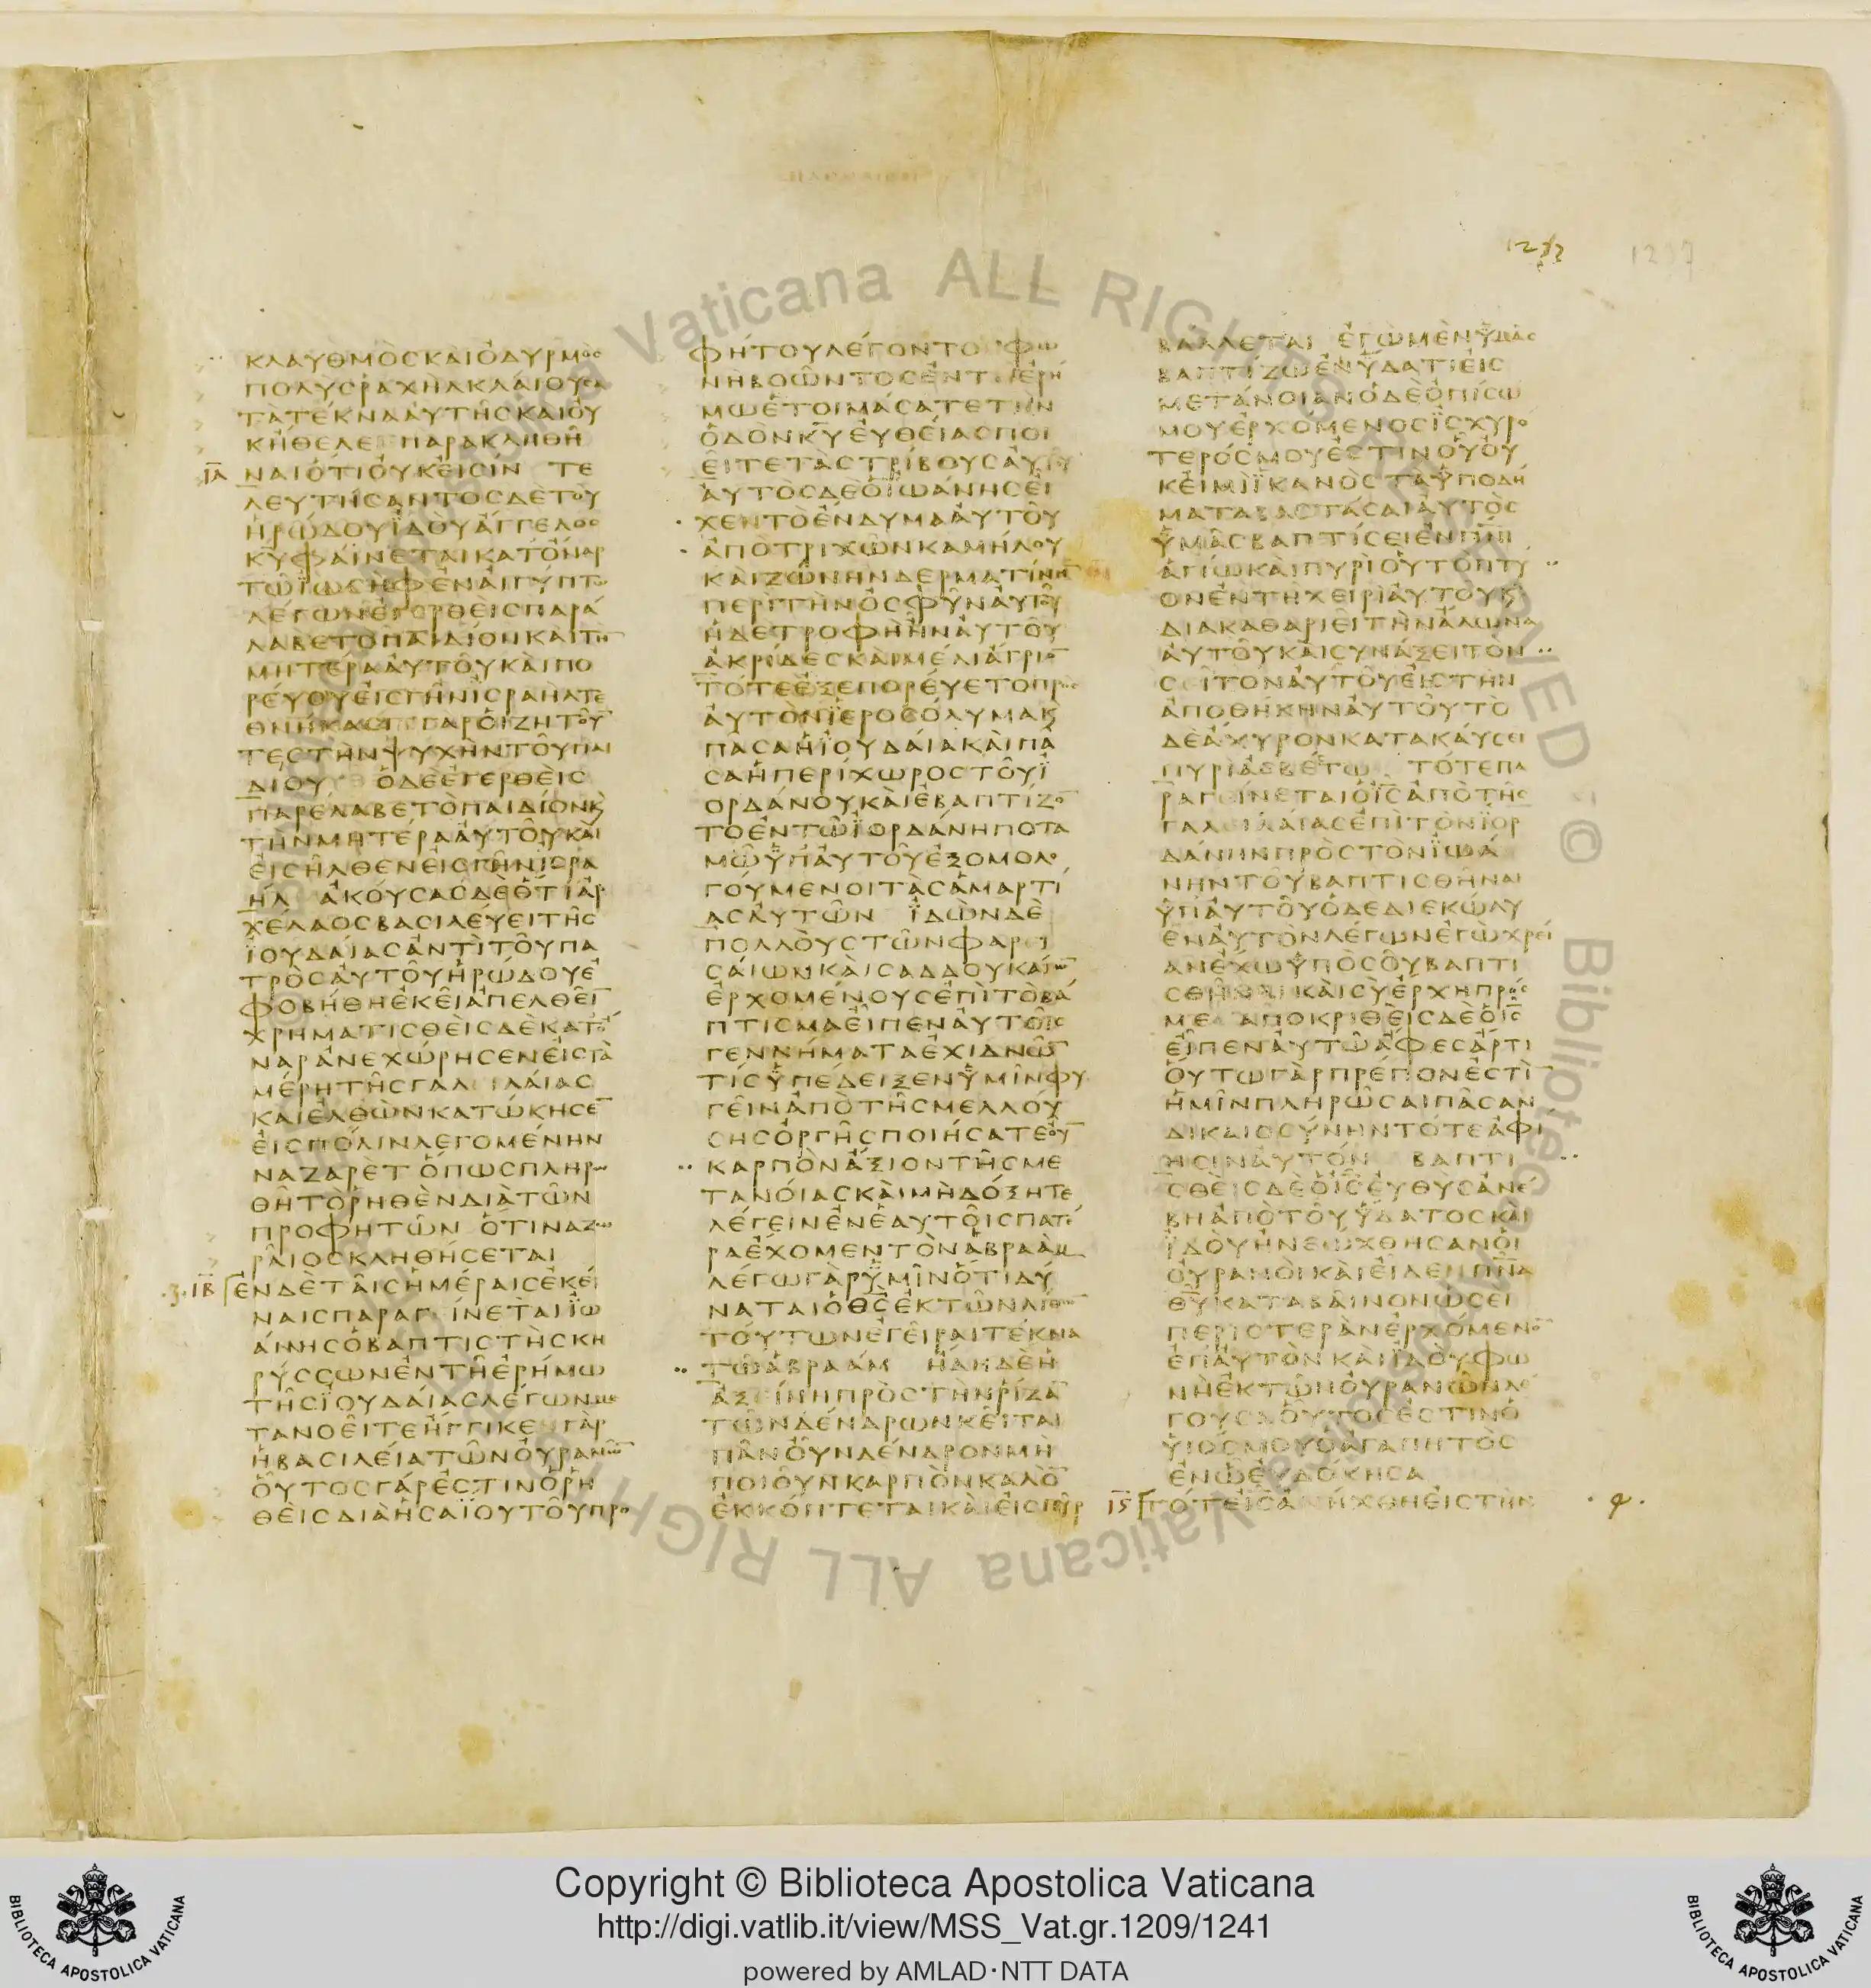 1237
ΚΛΑΥΘΜΟΣΚΑΙΟΔΥΡΜΟΣ
ΠΟΛΥΣΡΑΧΗΛΚΛΑΙΟΥΣΑ
ΤΑΤΕΚΝΑΑΥΤΗΣΚΑΙΟΥ
ΚΗΘΕΛΕ ΠΑΡΑΚΛΗΘΗ
ΙΑ ΝΑΙΟΤΙΟΥΚΕΙΣΙΝ ΤΕ
ΛΕΥΤΗΣΑΝΤΟΣΔΕΤΟΥ
ΗΡΩΔΟΥΪΔΟΥΑΓΓΕΛΟΣ
ΚΥΦΑΙΝΕΤΑΙΚΑΤΟΝΑΡ
ΤΩΪΩΣΗΦΕΝΑΙΓΥΠΤΩ
ΛΕΓΩΝΕΓΕΡΘΕΙΣΠΑΡΑ
ΛΑΒΕΤΟΠΑΙΔΙΟΝΚΑΙΤΗ̅
ΜΗΤΕΡΑΑΥΤΟΥΚΑΙΠΟ
ΡΕΥΟΥΕΙΣΓΗΝΙΣΡΑΗΛΤΕ
ΘΝΗΚΑΣΙ ΓΑΡΟΙΖΗΤΟΥ̅
ΤΕΣΤΗΝΨΥΧΗΝΤΟΥΠΑΙ
ΔΙΟΥ ΟΔΕΕΓΕΡΘΕΙΣ
ΠΑΡΕΛΑΒΕΤΟΠΑΙΔΙΟΝΚ
ΤΗΝΜΗΤΕΡΑΑΥΤΟΥΚΑΙ
ΕΙΣΗΛΘΕΝΕΙΣΓΗΝΙΣΡΑ
ΗΛ ΑΚΟΥΣΑΣΔΕΟΤΙΑΡ
ΧΕΛΑΟΣΒΑΣΙΛΕΥΕΙΤΗΣ
ΪΟΥΔΑΙΑΣΑΝΤΙΤΟΥΠΑ
ΤΡΟΣΑΥΤΟΥΗΡΩΔΟΥΕ
ΦΟΒΗΘΗΕΚΕΙΑΠΕΛΘΕΙ̅
ΧΡΗΜΑΤΙΣΘΕΙΣΔΕΚΑΤΟ
ΝΑΡΑΝΕΧΩΡΗΣΕΝΕΙΣΤΑ
ΜΕΡΗΤΗΣΓΑΛΕΙΛΑΙΑΣ
ΚΑΙΕΛΘΩΝΚΑΤΩΚΗΣΕ̅
ΕΙΣΠΟΛΙΝΛΕΓΟΜΕΝΗΝ
ΝΑΖΑΡΕΤ ΟΠΩΣΠΛΗΡΩ
ΘΗΤΟΡΗΘΕΝΔΙΑΤΩΝ
ΠΡΟΦΗΤΩΝ ΟΤΙΝΑΖΩ
ΡΑΙΟΣΚΛΗΘΗΣΕΤΑΙ
.3. ΙΒ ΕΝΔΕΤΑΙΣΗΜΕΡΑΙΣΕΚΕΙ
ΝΑΙΣΠΑΡΑΓΕΙΝΕΤΑΙΪΩ
ΑΝΗΣΟΒΑΠΤΙΣΤΗΣΚΗ
ΡΥΣΣΩΝΕΝΤΗΕΡΗΜΩ
ΤΗΣΪΟΥΔΑΙΑΣΛΕΓΩΝΜΕ
ΤΑΝΟΕΙΤΕΗΓΓΙΚΕΝΓΑΡ
ΗΒΑΣΙΛΕΙΑΤΩΝΟΥΡΑΝΩ̅
ΟΥΤΟΣΓΑΡΕΣΤΙΝΟΡΗ
ΘΕΙΣΔΙΑΗΣΑΪΟΥΤΟΥΠΡΟ
ΦΗΤΟΥΛΕΓΟΝΤΟΣ ΦΩ
ΝΗΒΟΩΝΤΟΣΕΝΤΗΕΡΗ
ΜΩΕΤΟΙΜΑΣΑΤΕΤΗΝ
ΟΔΟΝΚ̅Υ̅ΕΥΘΕΙΑΣΠΟΙ
ΕΙΤΕΤΑΣΤΡΙΒΟΥΣΑΥΤΟΥ
ΑΥΤΟΣΔΕΟΪΩΑΝΗΣΕΙ
ΧΕΝΤΟΕΝΔΥΜΑΑΥΤΟΥ
ΑΠΟΤΡΙΧΩΝΚΑΜΗΛΟΥ
ΚΑΙΖΩΝΗΝΔΕΡΜΑΤΙΝΗ̅
ΠΕΡΙΤΗΝΟΣΦΥΝΑΥΤΟΥ
ΗΔΕΤΡΟΦΗΗΝΑΥΤΟΥ
ΑΚΡΙΔΕΣΚΑΙΜΕΛΙΑΓΡΙΟ̅
ΤΟΤΕΕΞΕΠΟΡΕΥΕΤΟΠΡΟΣ
ΑΥΤΟΝΪΕΡΟΣΟΛΥΜΑΚ
ΠΑΣΑΗΪΟΥΔΑΙΑΚΑΙΠΑ
ΣΑΗΠΕΡΙΧΩΡΟΣΤΟΥΪ
ΟΡΔΑΝΟΥΚΑΙΕΒΑΠΤΙΖΟ̅
ΤΟΕΝΤΩΪΟΡΔΑΝΗΠΟΤΑ
ΜΩΫΠΑΥΤΟΥΕΞΟΜΟΛΟ
ΓΟΥΜΕΝΟΙΤΑΣΑΜΑΡΤΙ
ΑΣΑΥΤΩΝ ΪΔΩΝΔΕ
ΠΟΛΛΟΥΣΤΩΝΦΑΡΕΙ
ΣΑΙΩΝΚΑΙΣΑΔΔΟΥΚΑΙΩ̅
ΕΡΧΟΜΕΝΟΥΣΕΠΙΤΟΒΑ
ΠΤΙΣΜΑΕΙΠΕΝΑΥΤΟΙΣ
ΓΕΝΝΗΜΑΤΑΕΧΙΔΝΩ̅
ΤΙΣΫΠΕΔΕΙΞΕΝΫΜΙΝΦΥ
ΓΕΙΝΑΠΟΤΗΣΜΕΛΛΟΥ
ΣΗΣΟΡΓΗΣΠΟΙΗΣΑΤΕΟΥ̅
ΚΑΡΠΟΝΑΞΙΟΝΤΗΣΜΕ
ΤΑΝΟΙΑΣΚΑΙΜΗΔΟΞΗΤΕ
ΛΕΓΕΙΝΕΝΕΑΥΤΟΙΣΠΑΤΕ
ΡΑΕΧΟΜΕΝΤΟΝΑΒΡΑΑΜ
ΛΕΓΩΓΑΡΫΜΙΝΟΤΙΔΥ
ΝΑΤΑΙΟΘ̅Σ̅ΕΚΤΩΝΛΙΘΩ̅
ΤΟΥΤΩΝΕΓΕΙΡΑΙΤΕΚΝΑ
ΤΩΑΒΡΑΑΜ ΗΔΗΔΕΗ
ΑΞΕΙΝΗΠΡΟΣΤΗΝΡΙΖΑ̅
ΤΩΝΔΕΝΔΡΩΝΚΕΙΤΑΙ
ΠΑΝΟΥΝΔΕΝΔΡΟΝΜΗ
ΠΟΙΟΥΝΚΑΡΠΟΝΚΑΛΟ̅
ΕΚΚΟΠΤΕΤΑΙΚΑΙΕΙΣΠΥΡ
ΒΑΛΛΕΤΑΙ ΕΓΩΜΕΝΫΜΑΣ
ΒΑΠΤΙΖΩΕΝΫΔΑΤΙΕΙΣ
ΜΕΤΑΝΟΙΑΝΟΔΕΟΠΙΣΩ
ΜΟΥΕΡΧΟΜΕΝΟΣΪΣΧΥΡΟ
ΤΕΡΟΣΜΟΥΕΣΤΙΝΟΥΟΥ
ΚΕΙΜΙΪΚΑΝΟΣΤΑΫΠΟΔΗ
ΜΑΤΑΒΑΣΤΑΣΑΙΑΥΤΟΣ
ΫΜΑΣΒΑΠΤΙΣΕΙΕΝΠ̅Ν̅Ι̅
ΑΓΙΩΚΑΙΠΥΡΙΟΥΤΟΠΤΥ
ΟΝΕΝΤΗΧΕΙΡΙΑΥΤΟΥΚ
ΔΙΑΚΑΘΑΡΙΕΙΤΗΝΑΛΩΝΑ
ΑΥΤΟΥΚΑΙΣΥΝΑΞΕΙΤΟΝ
ΣΕΙΤΟΝΑΥΤΟΥΕΙΣΤΗΝ
ΑΠΟΘΗΚΗΝΑΥΤΟΥΤΟ
ΔΕΑΧΥΡΟΝΚΑΤΑΚΑΥΣΕΙ
ΠΥΡΙΑΣΒΕΣΤΩ ΤΟΤΕΠΑ
ΡΑΓΕΙΝΕΤΑΙΟΙ̅Σ̅ΑΠΟΤΗΣ
ΓΑΛΕΙΛΑΙΑΣΕΠΙΤΟΝΪΟΡ
ΔΑΝΗΝΠΡΟΣΤΟΝΪΩΑ
ΝΗΝΤΟΥΒΑΠΤΙΣΘΗΝΑΙ
ΫΠΑΥΤΟΥΟΔΕΔΙΕΚΩΛΥ
ΕΝΑΥΤΟΝΛΕΓΩΝΕΓΩΧΡΕΙ
ΑΝΕΧΩΫΠΟΣΟΥΒΑΠΤΙ
ΣΘΗΝΑΙΚΑΙΣΥΕΡΧΗΠΡΟΣ
ΜΕ ΑΠΟΚΡΙΘΕΙΣΔΕΟΙ̅Σ̅
ΕΙΠΕΝΑΥΤΩΑΦΕΣΑΡΤΙ
ΟΥΤΩΓΑΡΠΡΕΠΟΝΕΣΤΙ̅
ΗΜΙΝΠΛΗΡΩΣΑΙΠΑΣΑΝ
ΔΙΚΑΙΟΣΥΝΗΝΤΟΤΕΑΦΙ
ΗΣΙΝΑΥΤΟΝ ΒΑΠΤΙ
ΣΘΕΙΣΔΕΟΙ̅Σ̅ΕΥΘΥΣΑΝΕ
ΒΗΑΠΟΤΟΥΫΔΑΤΟΣΚΑΙ
ΪΔΟΥΗΝΕΩΧΘΗΣΑΝΟΙ
ΟΥΡΑΝΟΙΚΑΙΕΙΔΕΝΠ̅Ν̅Α̅
Θ̅Υ̅ΚΑΤΑΒΑΙΝΟΝΩΣΕΙ
ΠΕΡΙΣΤΕΡΑΝΕΡΧΟΜΕΝΟ̅
ΕΠΑΥΤΟΝΚΑΙΪΔΟΥΦΩ
ΝΗΕΚΤΩΝΟΥΡΑΝΩΝΛΕ
ΓΟΥΣΑΟΥΤΟΣΕΣΤΙΝΟ
ΫΙΟΣΜΟΥΟΑΓΑΠΗΤΟΣ
ΕΝΩΕΥΔΟΚΗΣΑ
ΙϚ ΤΟΤΕΙ̅Σ̅ΑΝΗΧΘΗΕΙΣΤΗΝ
Vaticana ALL RIGHTS RESERVED © Biblioteca Apostolica Vaticana ALL RIGH
BIBLIOTECA APOSTOLICA VATICANA
Copyright © Biblioteca Apostolica Vaticana
http://digi.vatlib.it/view/MSS_Vat.gr.1209/1241
powered by AMLAD·NTT DATA
BIBLIOTECA APOSTOLICA VATICANA